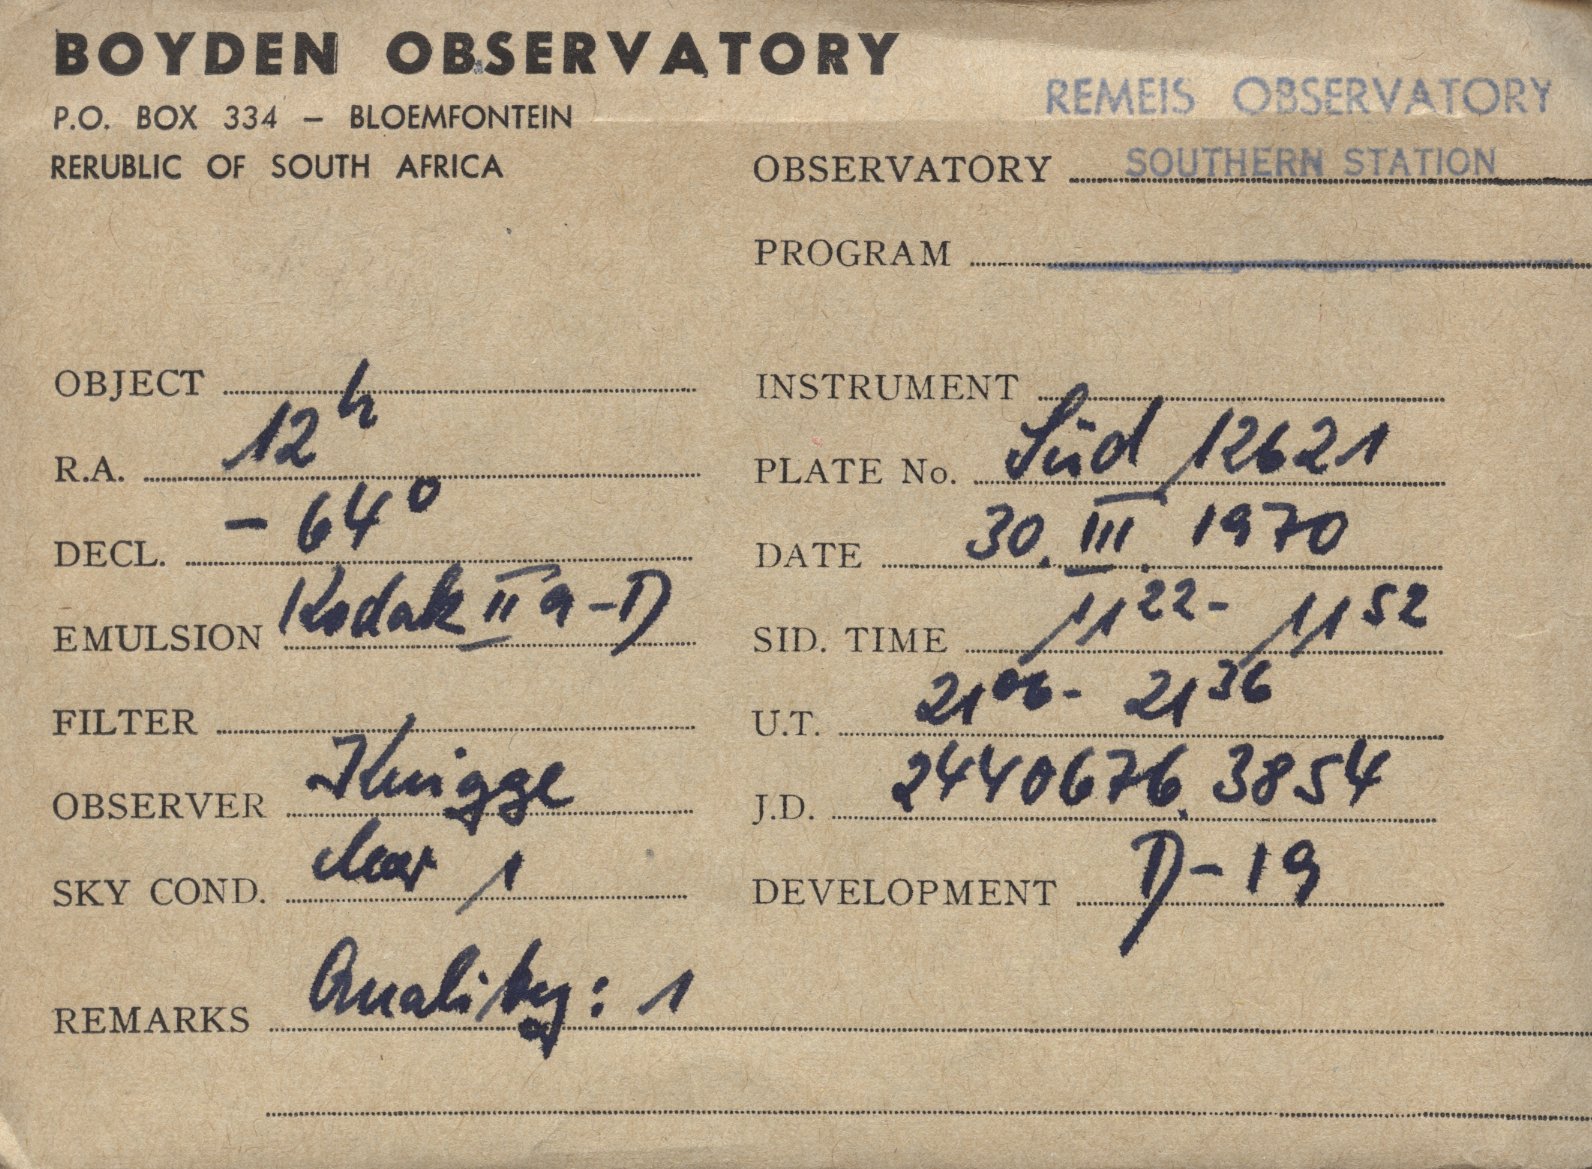 BOYDEN OBSERVATORY
P.O. BOX 334 – BLOEMFONTEIN
RERUBLIC OF SOUTH AFRICA
REMEIS OBSERVATORY
OBSERVATORY SOUTHERN STATION
PROGRAM
OBJECT
INSTRUMENT
R.A. 12h
PLATE No. Süd 12621
DECL. -64°
DATE 30. III. 1970
EMULSION Kodak II a-D
SID. TIME 11 22 - 11 52
FILTER
U.T. 21 06 - 21 36
OBSERVER Knigge
J.D. 2440676.3854
SKY COND. clear 1
DEVELOPMENT D-19
REMARKS Quality: 1